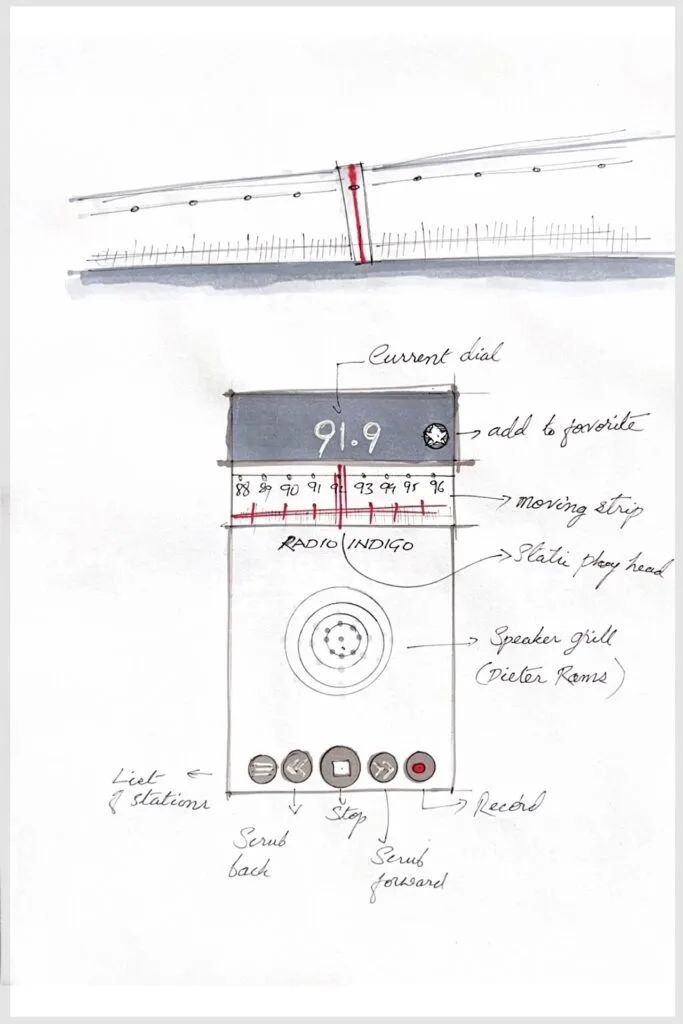 Current dial
91.9
add to favorite
88 89 90 91 92 93 94 95 96
moving strip
RADIO INDIGO
Static play head
Speaker grill
(Dieter Rams)
List
of stations
Scrub
back
Stop
Scrub
forward
Record